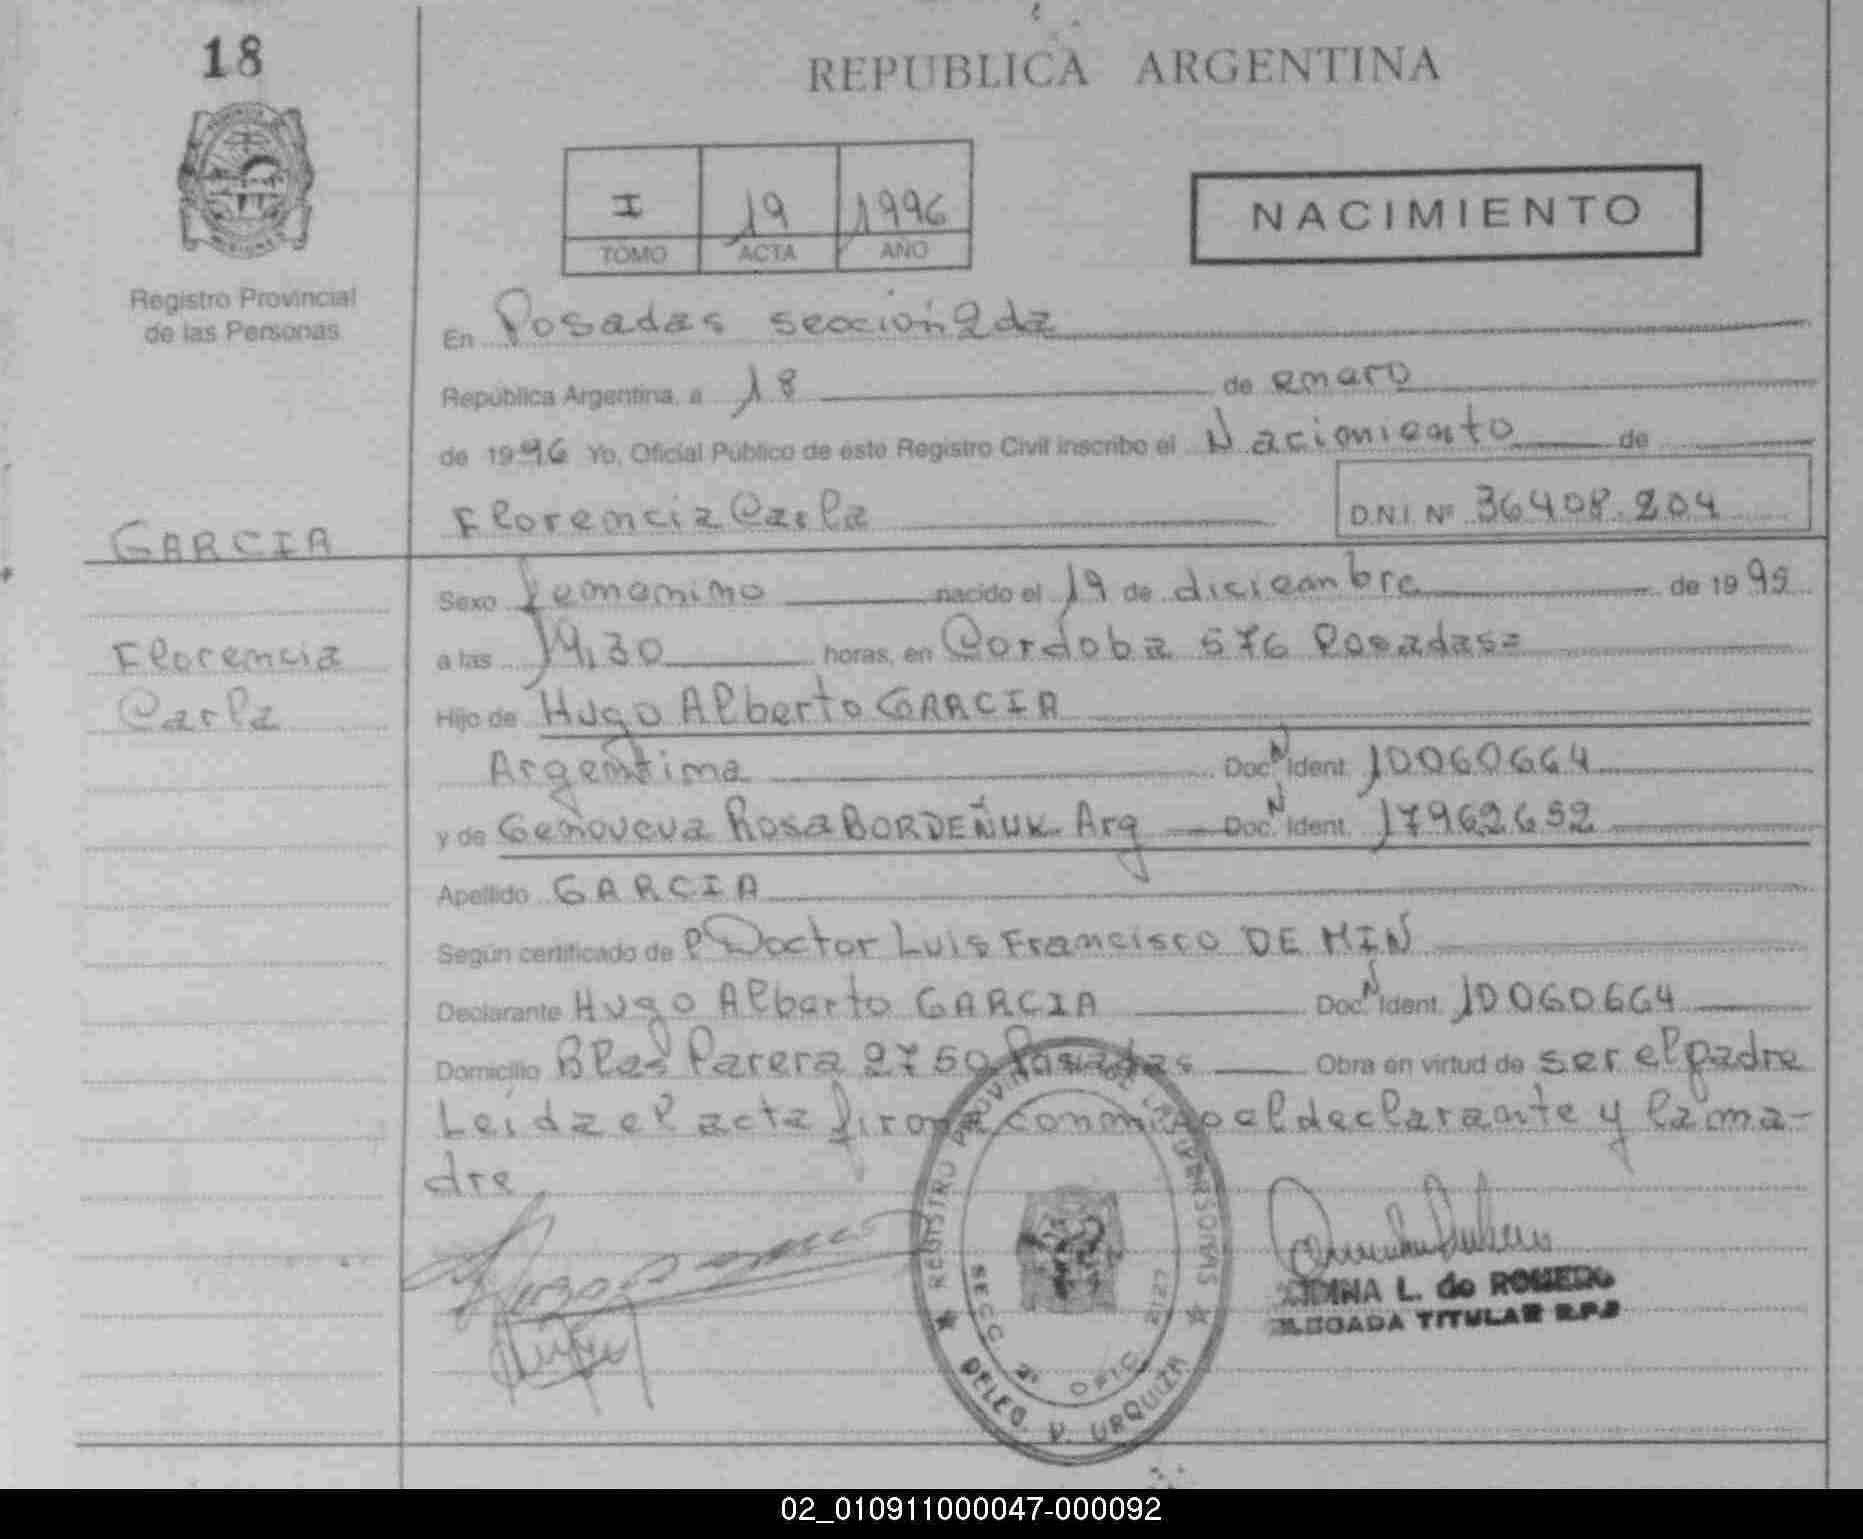 18
REPUBLICA ARGENTINA
I 19 1996
TOMO ACTA AÑO
NACIMIENTO
Registro Provincial
de las Personas
En Posadas seccion 2da
República Argentina, a 18 de enero
de 1996 Yo, Oficial Público de este Registro Civil inscribo el Nacimiento de
Florencia Carla D.N.I. Nº 36408.204
GARCIA
Florencia
Carla
Sexo femenino nacido el 19 de diciembre de 1995
a las 19,30 horas, en Cordoba 576 Posadas=
Hijo de Hugo Alberto GARCIA
Argentina Doc. N Ident. 10060664
y de Genoveva Rosa BORDEÑUK Arg Doc. N Ident. 17962652
Apellido GARCIA
Según certificado de l Doctor Luis Francisco DE MIN
Declarante Hugo Alberto GARCIA Doc. N Ident. 10060664
Domicilio Blas Parera 2750 Posadas Obra en virtud de ser el padre
Leida el acta firma conmigo el declarante y la ma-
dre
REGISTRO PROVINCIAL DE LAS PERSONAS
SECC. 2ª OFIC. 2127
DELEG. V. URQUIZA
L. de ROMERO
DELEGADA TITULAR R.P.P
02_010911000047-000092